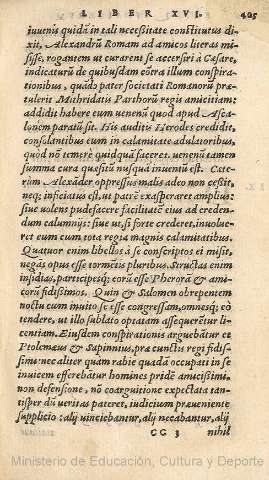 LIBER XVI. 425
iuuenis quidã in tali necessitate constitutus di-
xit, Alexandrũ Romam ad amicos literas mi-
sisse, rogantem ut curarent se accersiri à Cæsare,
indicaturũ de quibusdam cõtra illum conspira-
tionibus, quòd pater societati Romanorũ præ-
tulerit Mithridatis Parthorũ regis amicitiam:
addidit habere eum uenenũ quod apud Asca-
lonem paratũ sit. His auditis Herodes credidit,
consolantibus eum in calamitate adulatoribus,
quod nõ temerè quidquã faceret. uenenũ tamen
summa cura quæsitũ nusquã inuentũ est. Cete-
rùm Alexãder oppressus malis adeo non cessit,
neq; inficiatus est, ut patrẽ exasperaret amplius:
siue uolens pudefacere facilitatẽ eius ad creden-
dum calumnijs: siue ut, si forte crederet, inuolue-
ret eum cum tota regia magnis calamitatibus.
Quatuor enim libellos à se conscriptos ei misit,
negãs opus esse tormẽtis pluribus. Structas enim
insidias, participesq; eorũ esse Pherorã & ami-
corũ fidissimos. Quin & Salomen obrepentem
noctu cum inuito se esse congressam, omnesq; eò
tendere, ut illo sublato optatam assequerẽtur li-
centiam. Eiusdem conspirationis arguebãtur et
Ptolemæus & Sapinnius, præ cunctis regi fidiss-
simi: nec aliter quàm rabie quadã occupati in se
inuicem efferebãtur homines pridẽ amicissimi.
non defensione, nõ coarguitione expectata tan-
tisper dũ ueritas pateret, iudicium præueniente
supplicio: alij uinciebantur, alij necabantur, alij
GG 3 nihil
Ministerio de Educación, Cultura y Deporte